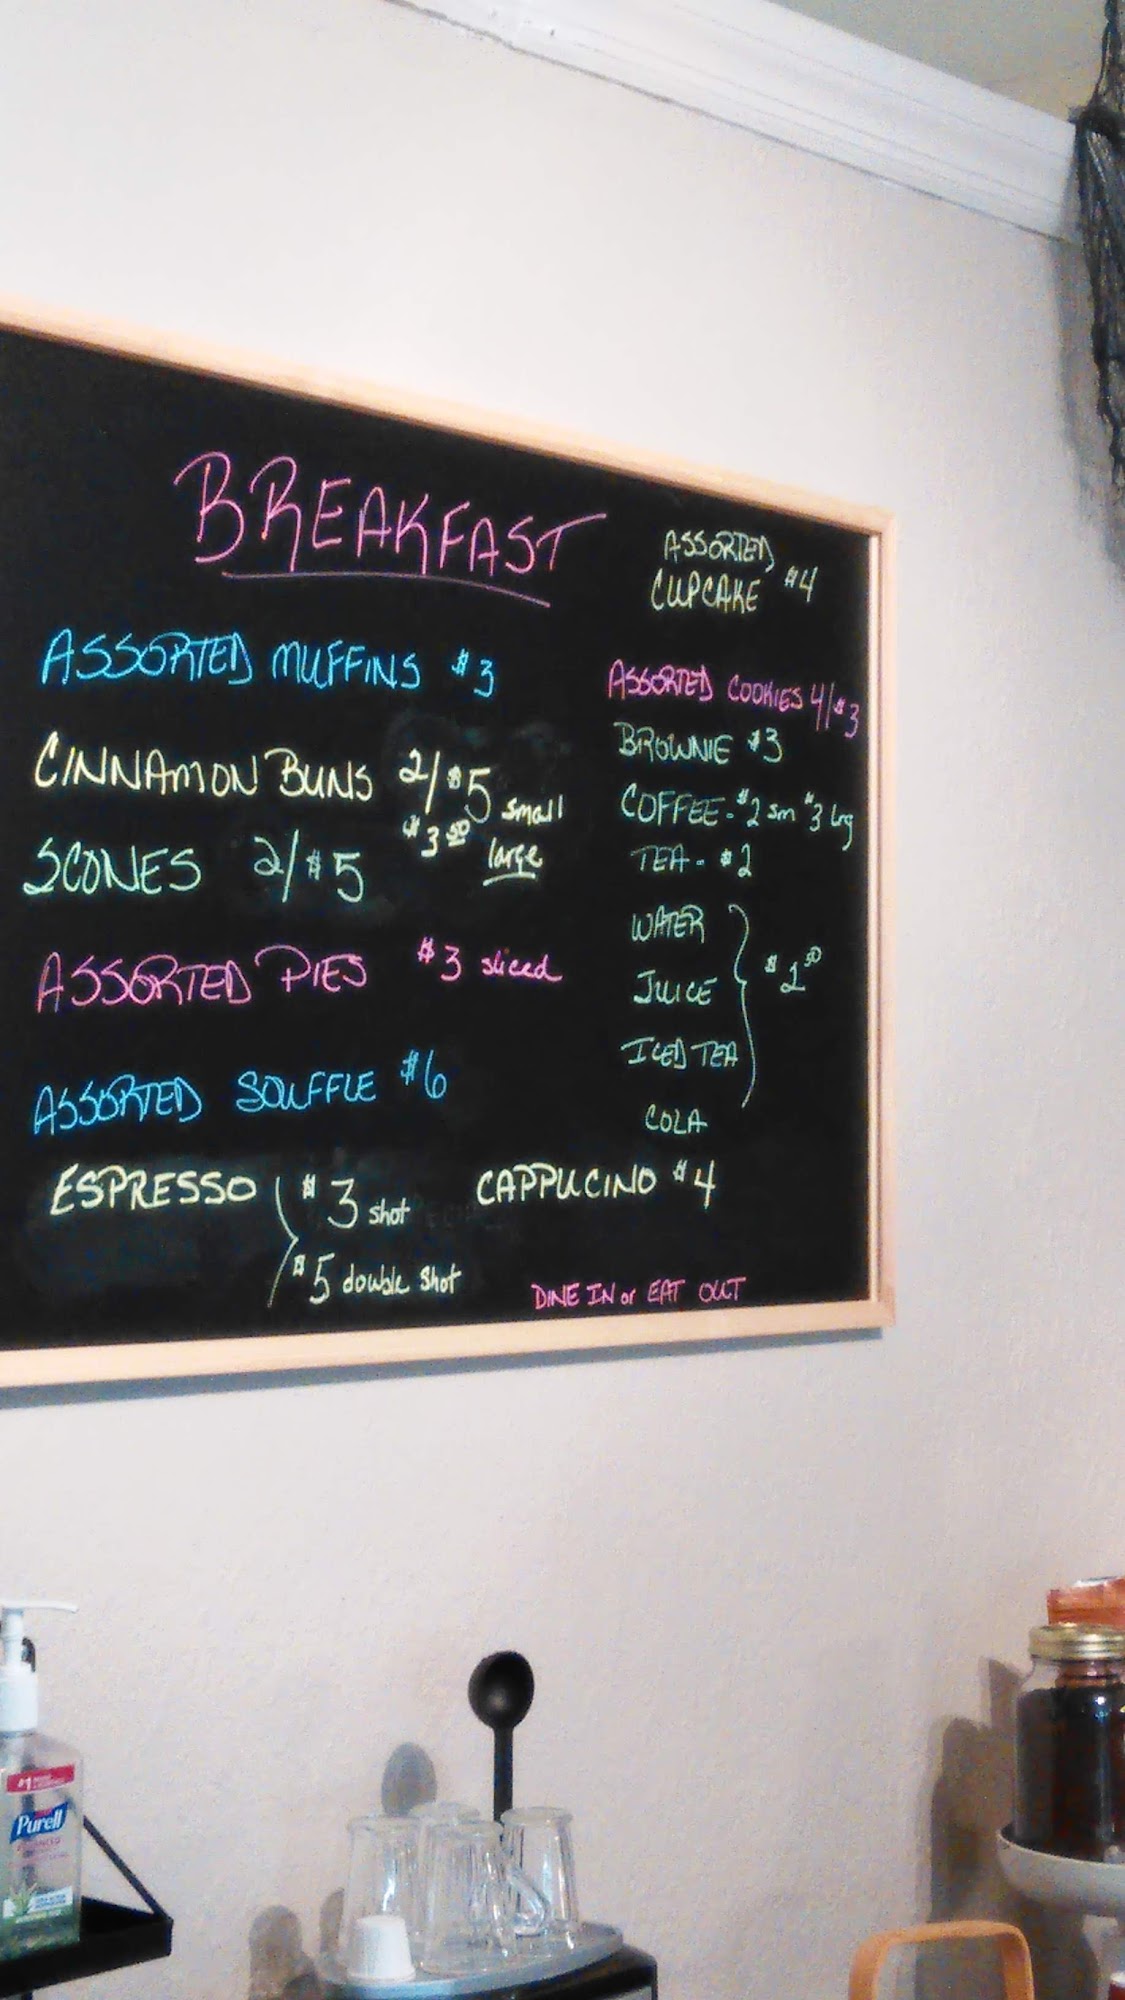 BREAKFAST
ASSORTED MUFFINS $3
CINNAMON BUNS 2/$5 small
$3.50 large
SCONES 2/$5
ASSORTED PIES $3 sliced
ASSORTED SOUFFLE $6
ESPRESSO $3 shot
$5 double shot
ASSORTED
CUPCAKE $4
ASSORTED COOKIES 4/$3
BROWNIE $3
COFFEE - $2 sm $3 lrg
TEA - $2
WATER
JUICE $1.50
ICED TEA
COLA
CAPPUCINO $4
DINE IN or EAT OUT
#1
Purell